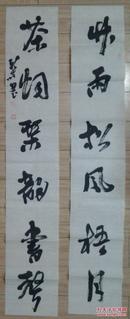 竹雨松风梧月
茶烟琴韵书声